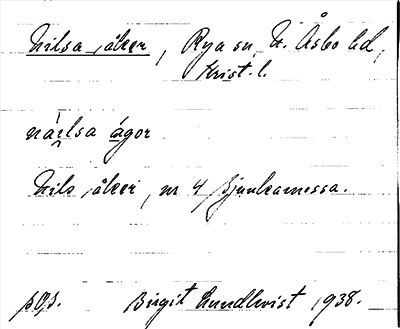 Nilsa åker, Rya sn, N. Åsbo hd,
Krist. l.
nálsa ágor
Nils åker, nr 4 Bjunkamossa.
Birgit Lundkvist 1938.